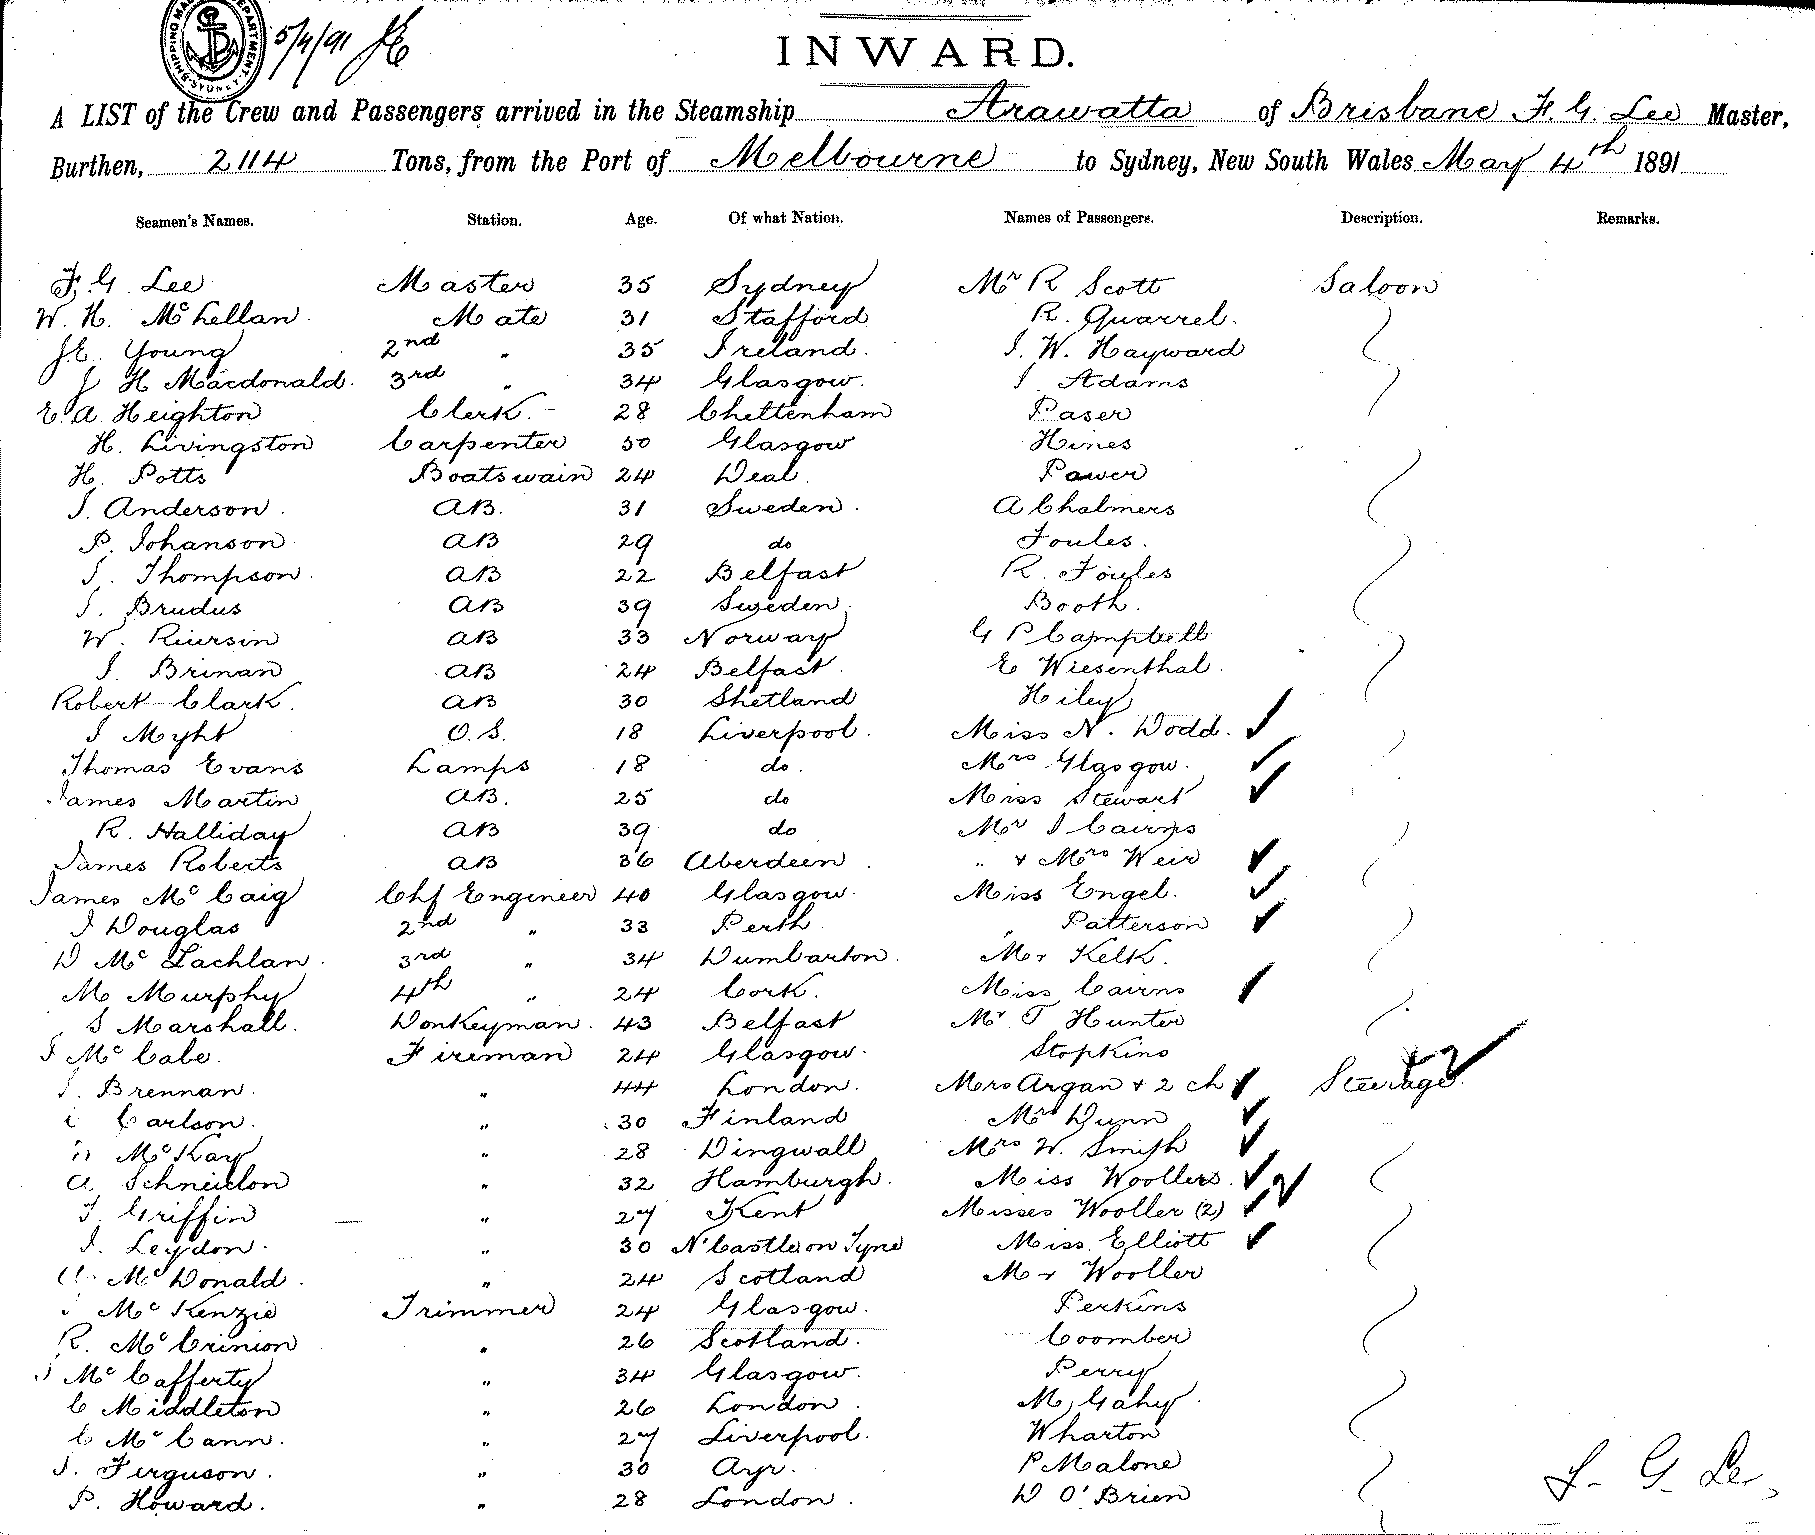 SHIPPING MA DEPARTMENT SYDNEY
5/4/91 JE
INWARD.
A LIST of the Crew and Passengers arrived in the Steamship Arawatta of Brisbane F. G. Lee Master,
Burthen, 2114 Tons, from the Port of Melbourne to Sydney, New South Wales May 4th 1891
Seamen's Names. Station. Age. Of what Nation. Names of Passengers. Description. Remarks.
F. G. Lee Master 35 Sydney Mr R Scott Saloon
W. H. McLellan Mate 31 Stafford R. Quarrel.
J.E. Young 2nd " 35 Ireland. J. W. Hayward
J H Macdonald. 3rd " 34 Glasgow. J Adams
E. A. Heighton Clerk. 28 Cheltenham Paser
H. Livingston Carpenter 50 Glasgow Hines
H. Potts Boatswain 24 Deal. Power
J. Anderson. AB. 31 Sweden. A Chalmers
P. Johanson AB 29 do Foules.
J. Thompson. AB 22 Belfast R. Foules
J. Brudus AB 39 Sweden. Booth.
W. Riersin AB 33 Norway G P Campbell
J. Brinan AB 24 Belfast. E Wiesenthal.
Robert Clark. AB 30 Shetland Hiley
J Myht O.S. 18 Liverpool. Miss N. Dodd.
Thomas Evans Lamps 18 do. Mrs Glasgow.
James Martin AB. 25 do Miss Stewart
R. Halliday AB 39 do Mr J Cairns
James Roberts AB 36 Aberdeen. " + Mrs Weir
James McCaig Chf Engineer 40 Glasgow. Miss Engel.
J Douglas 2nd " 33 Perth. " Patterson
D McLachlan. 3rd " 34 Dumbarton. Mr Kelk.
M Murphy 4th " 24 Cork. Miss Cairns
S Marshall. Donkeyman. 43 Belfast Mr T Hunter
J McCabe. Fireman 24 Glasgow. Stopkins
J. Brennan. " 44 London. Mrs Argan + 2 ch Steerage.
Carlson. " 30 Finland Mrs Dunn
McKay " 28 Dingwall Mrs W. Smith
A Schneidlon " 32 Hamburgh. Miss Woollers.
F. Griffin " 27 Kent Misses Wooller (2)
J. Leydon. " 30 N'Castle on Tyne Miss Elliott
McDonald. " 24 Scotland Mr Wooller
McKenzie Trimmer 24 Glasgow. Perkins
R. McCrinion " 26 Scotland. Coomber
J McCafferty " 34 Glasgow. Perry
C Middleton " 26 London. McGahy.
C McCann. " 27 Liverpool. Wharton
J. Ferguson. " 30 Ayr. P Malone
P. Howard. " 28 London. D O'Brien
F. G. Lee